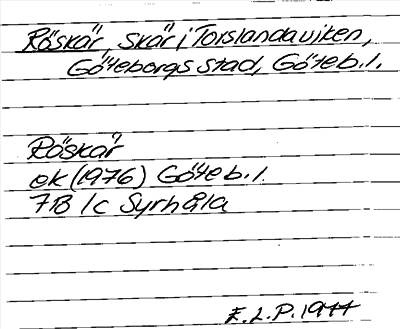 Röskär, skär i Torslandaviken,
Göteborgs stad, Göteb. l.
Röskär
ek (1976) Göteb. l.
7B 1c Syrhåla
E.L.P. 1977